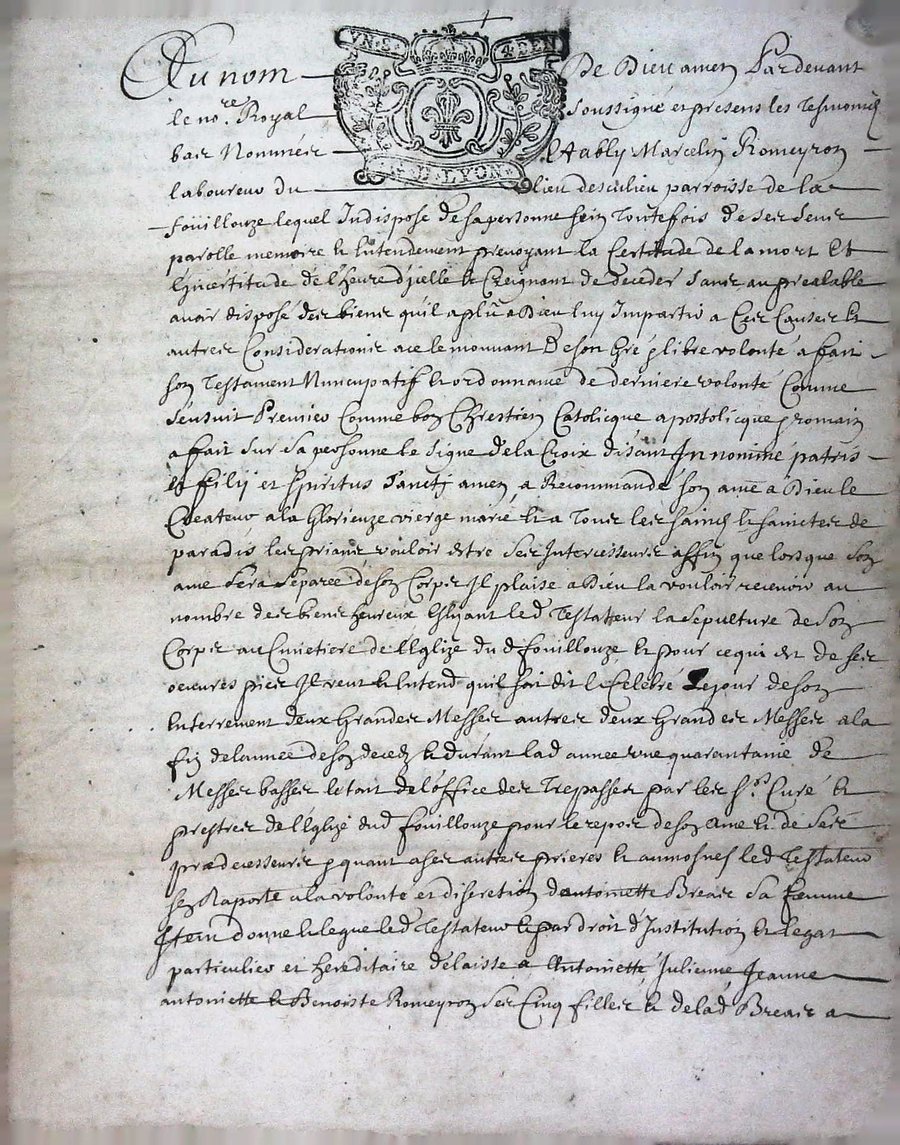 VN.S. 4 DEN
G. D. LYON
Au nom De Dieu amen Pardevant
le no.re Royal Soussigné et presens les tesmoins
bas Nommés Establÿ Marcelin Romeyron
laboureur du lieu desculieu parroisse de la
fouillouze lequel Indisposé de sa personne sein Toutefois de ses sens
parolle memoire et Entendement prevoyant la Certitude de la mort Et
L'incertitude de l'heure d'jcelle et Creignant de deceder sans au prealable
avoir disposé des biens qu'il a plû a Dieu luy Impartir a Ces Causes et
autres Considerations a ce le mouvant De son Gré & libre volonté a fait
son Testament Nuncupatif et ordonnance de derniere volonté Comme
s'ensuit Premier Comme bon Chrestien Catolicque apostolicque & romain
a fait sur sa personne le signe de la Croix disant In nominé patris
Et filij et spiritus sanctj amen, a Recommandé son ame a Dieu le
Createur a la Glorieuze vierge marie et a Tous les saincts et sainctes de
paradis les priant vouloir estre ses Intercesseurs affin que lorsque son
ame sera separée de son Corps Jl plaise a Dieu la vouloir recevoir au
nombre des biens heureux Eslizant led Testatteur la sepulture de son
Corps au Cimetiere de l'Eglize dud fouillouze et pour ce qui est de ses
oeuvres pies Jl veut et Entend qu'il soit dit et Celebré Le jour de son
Enterrement deux Grandes Messes autres deux Grandes Messes a la
fin de lannée de son deced et durant lad année une quarantaine de
Messes basses le tout de l'office des Trepasses par les srs Curé et
prestres de l'Eglize dud fouillouze pour le repos de son ame et de ses
prædecesseurs & quant a ses autres prieres et aumosnes led Testateur
s'en Raporte a la volonté et discretion d'antoinette Breas sa femme
Item donne et legue led Testateur et par droit d'Institution et legat
particulier et hereditaire delaisse a Antoinette Julienne Jeanne
antoinette et Benoiste Romeyron ses Cinq filles et de lad Breas a